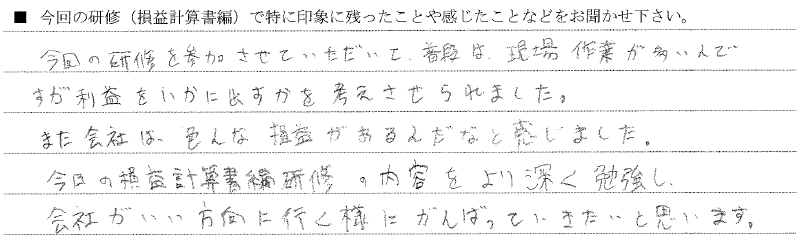 ■ 今回の研修（損益計算書編）で特に印象に残ったことや感じたことなどをお聞かせ下さい。
今回の研修を参加させていただいて、普段は、現場作業が多いんで
すが利益をいかに出すかを考えさせられました。
また会社は、色んな損益があるんだなと感じました。
今日の損益計算書編研修の内容をより深く勉強し、
会社がいい方向に行く様にがんばっていきたいと思います。